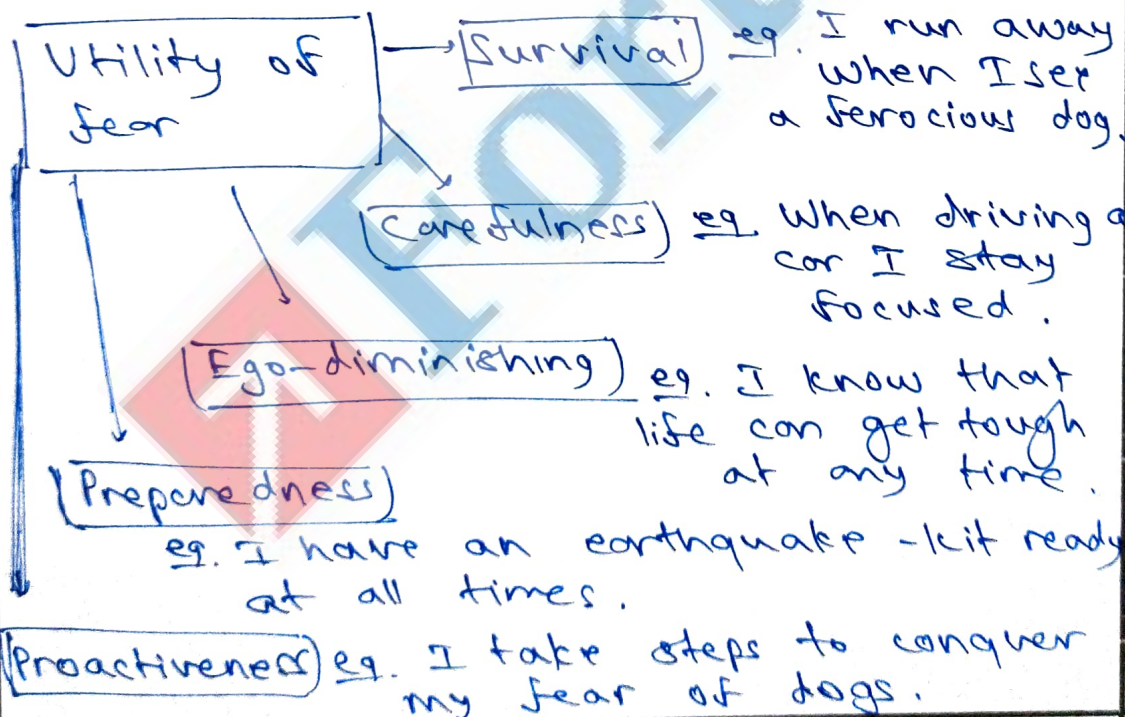 Utility of fear
Survival eg. I run away
when I see
a ferocious dog.
Carefulness eg. When driving a
car I stay
focused.
Ego-diminishing eg. I know that
life can get tough
at any time.
Preparedness
eg. I have an earthquake-kit ready
at all times.
Proactiveness eg. I take steps to conquer
my fear of dogs.
For